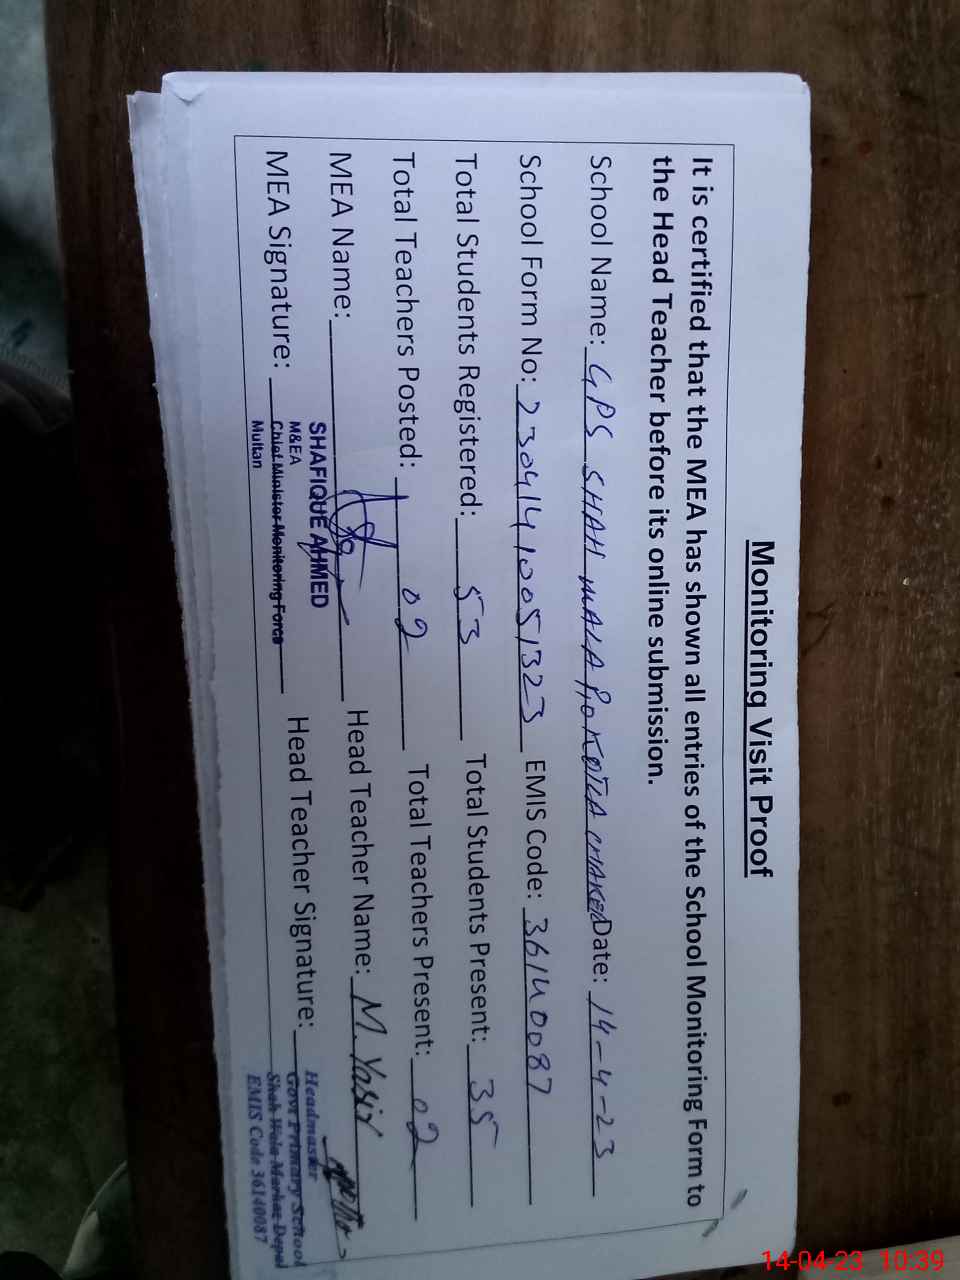 Monitoring Visit Proof
It is certified that the MEA has shown all entries of the School Monitoring Form to
the Head Teacher before its online submission.
School Name: GPS SHAH WALA P/O KOTLA CHAKER Date: 14-4-23
School Form No: 230414 10051323 EMIS Code: 36140087
Total Students Registered: 53 Total Students Present: 35
Total Teachers Posted: 02 Total Teachers Present: 02
MEA Name: Head Teacher Name: M. Yasir
SHAFIQUE AHMED
M&EA
MEA Signature: Chief Minister Monitoring Force Head Teacher Signature:
Multan
Headmaster
Govt Primary School
Shah Wala Markaz Depal
EMIS Code 36140087
14-04-23 10:39